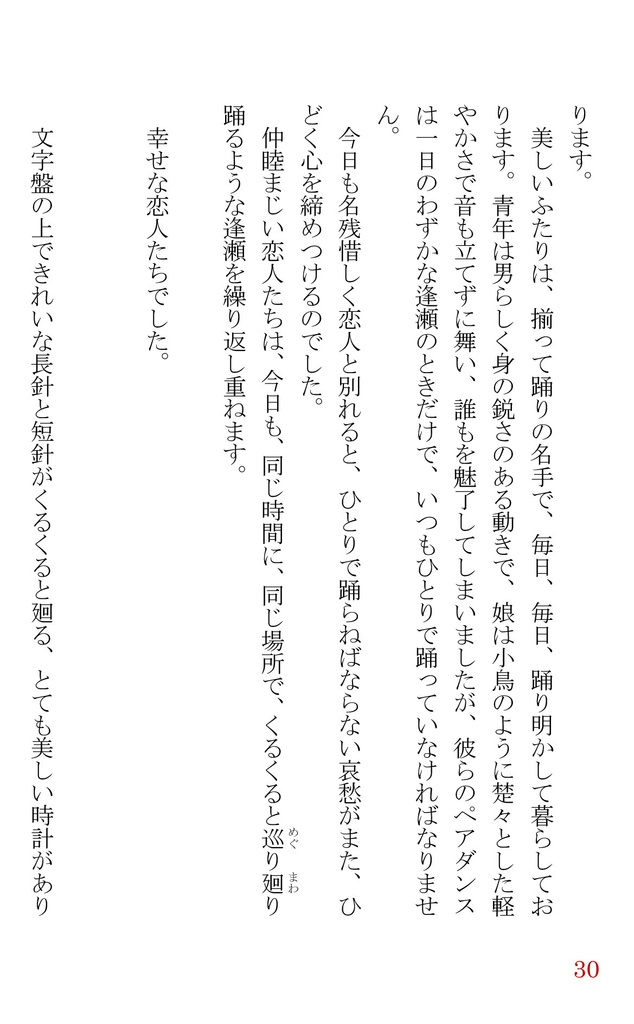 ります。
美しいふたりは、揃って踊りの名手で、毎日、毎日、踊り明かして暮らしてお
ります。青年は男らしく身の鋭さのある動きで、娘は小鳥のように楚々とした軽
やかさで音も立てずに舞い、誰もを魅了してしまいましたが、彼らのペアダンス
は一日のわずかな逢瀬のときだけで、いつもひとりで踊っていなければなりませ
ん。
今日も名残惜しく恋人と別れると、ひとりで踊らねばならない哀愁がまた、ひ
どく心を締めつけるのでした。
仲睦まじい恋人たちは、今日も、同じ時間に、同じ場所で、くるくると巡り廻り
めぐ まわ
踊るような逢瀬を繰り返し重ねます。
幸せな恋人たちでした。
文字盤の上できれいな長針と短針がくるくると廻る、とても美しい時計があり
30